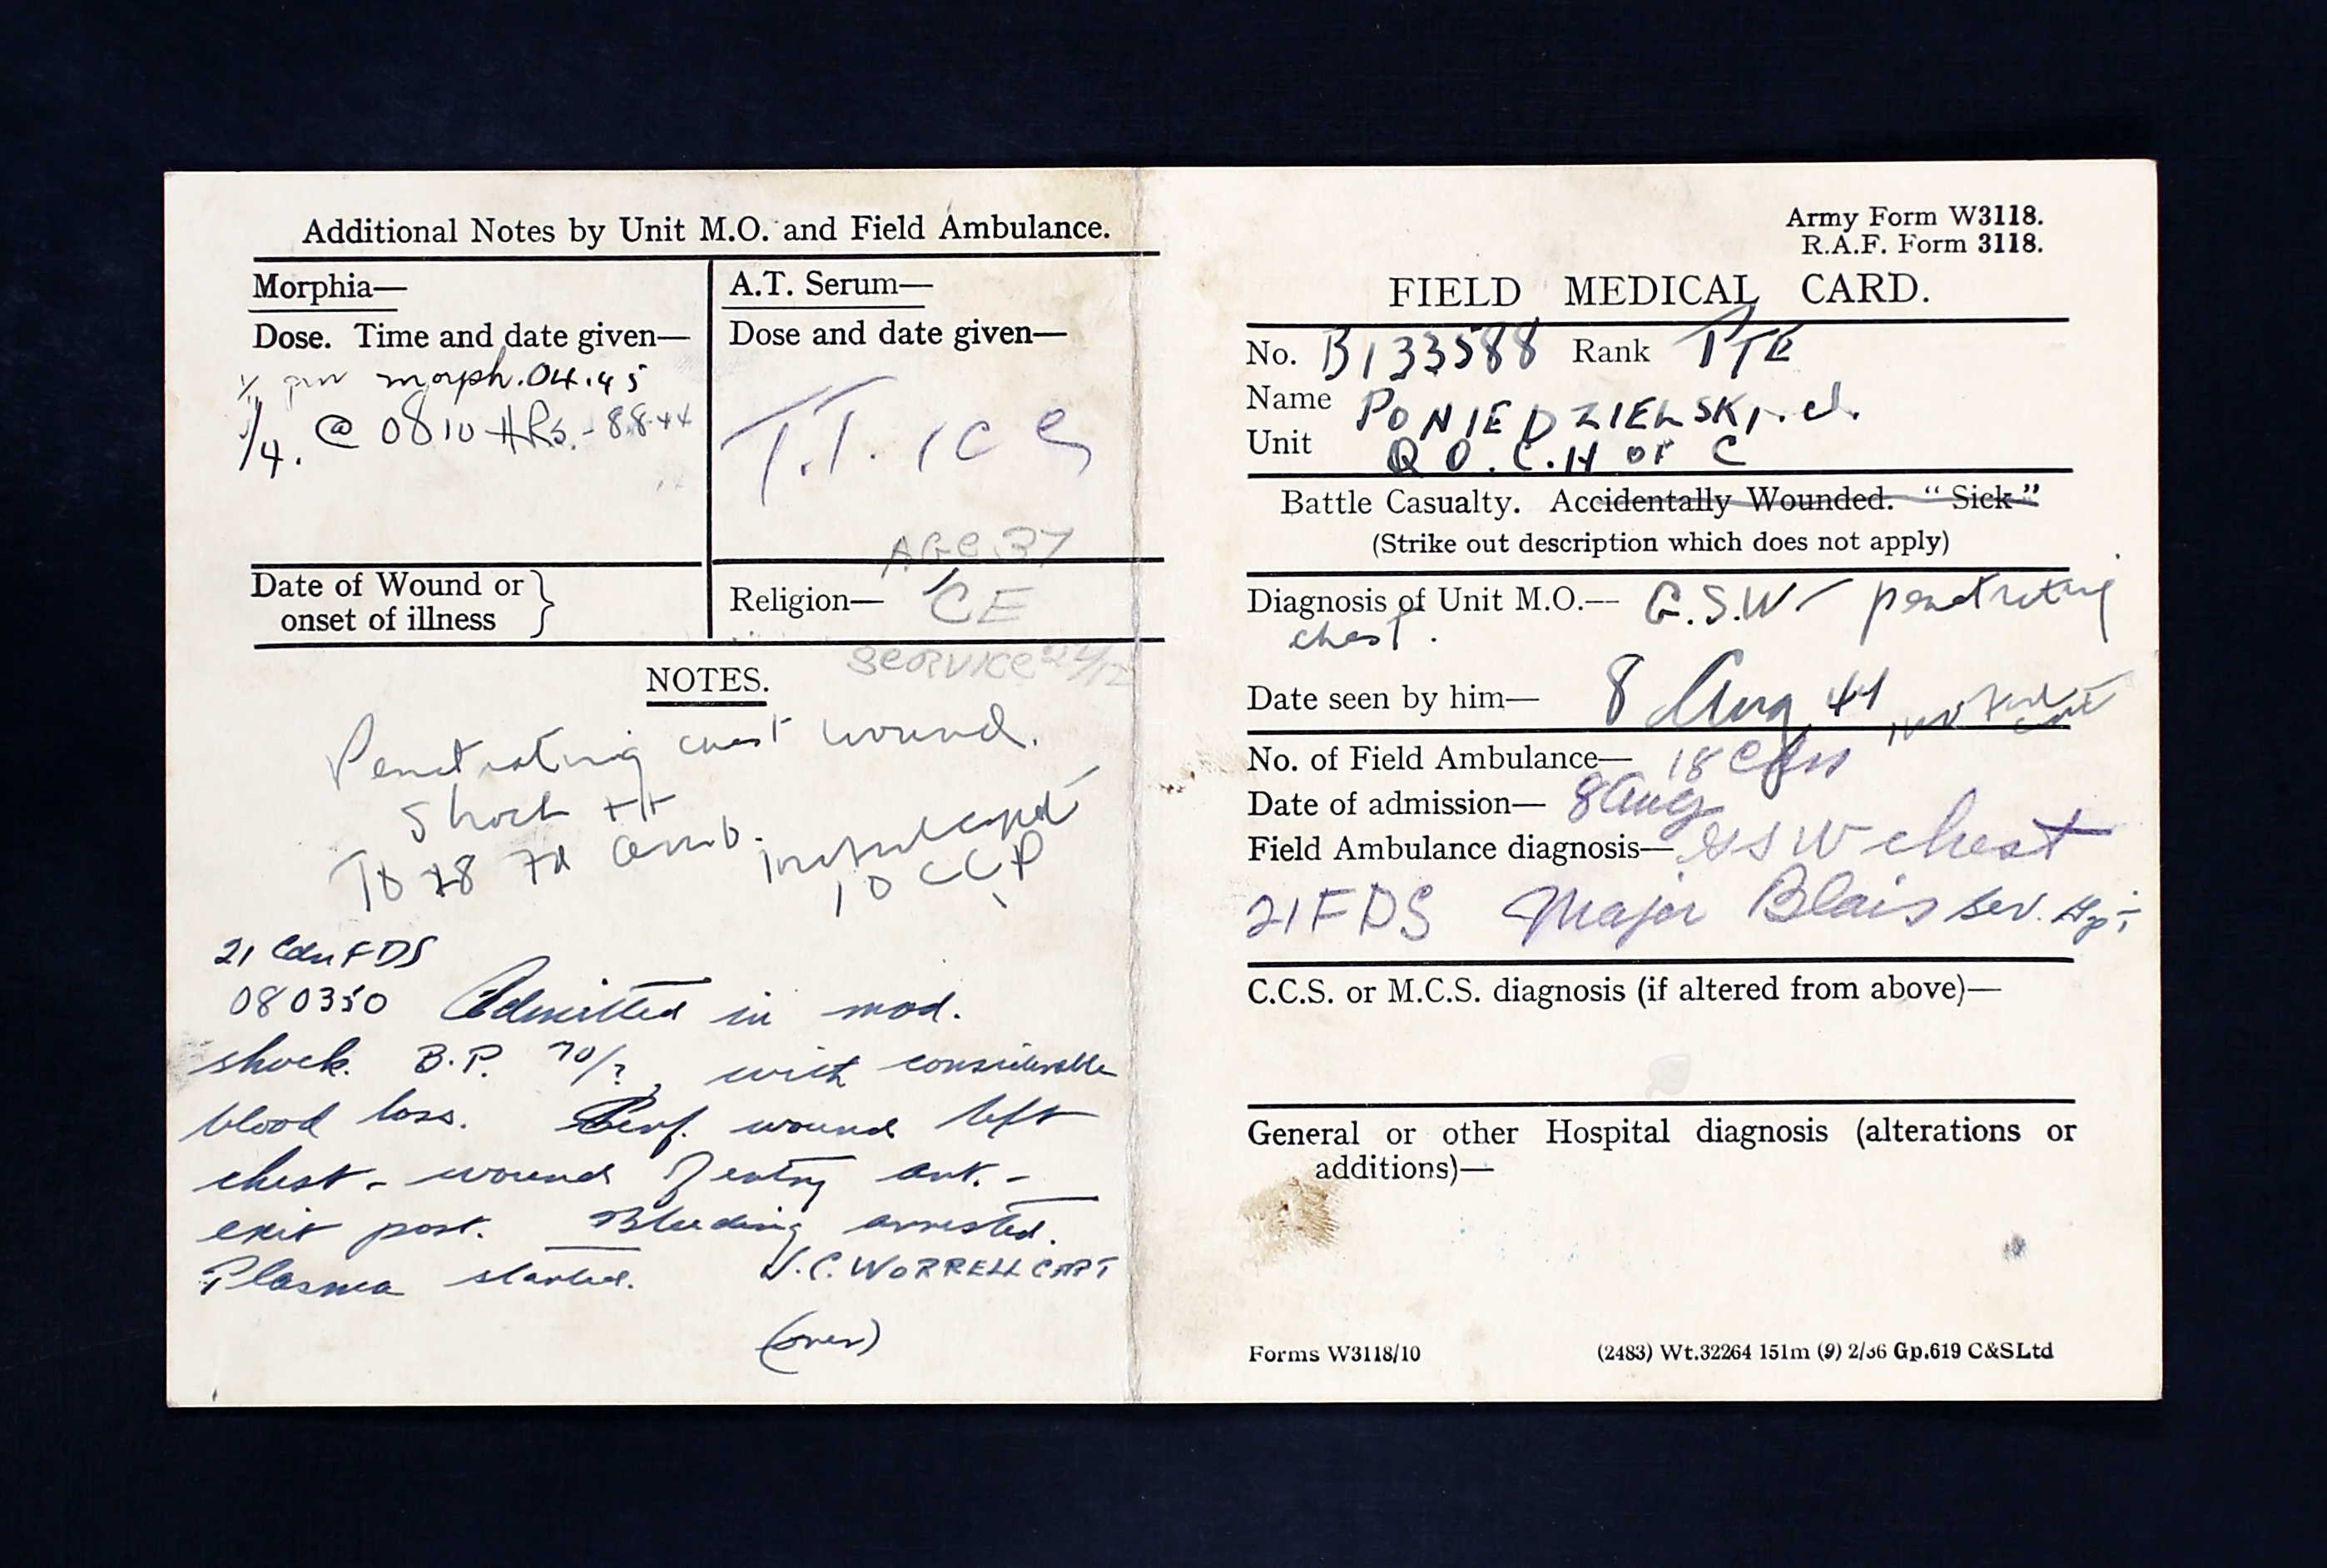 Additional Notes by Unit M.O. and Field Ambulance.
Morphia—
Dose. Time and date given—
morph. 04.45
1/4. @ 0810 HRS. - 8.8.44
A.T. Serum—
Dose and date given—
T.T. 1cc
AGE 37
Date of Wound or
onset of illness }
Religion— CE
SERVICE
NOTES.
Penetrating chest wound.
Shock ++
To 18 Fd Amb.
CCP
21 Cdn FDS
080350 Admitted in mod.
shock. B.P. 70/?, with considerable
blood loss. Perf. wound left
chest - wound of entry ant. -
exit post. Bleeding arrested.
Plasma started. J.C. WORRELL CAPT
(over)
Army Form W3118.
R.A.F. Form 3118.
FIELD MEDICAL CARD.
No. B133588 Rank PTE
Name PONIEDZIELSKI, J.
Unit Q.O.C.H of C
Battle Casualty. Accidentally Wounded. “Sick”
(Strike out description which does not apply)
Diagnosis of Unit M.O.— G.S.W. penetrating
chest.
Date seen by him— 8 Aug 44
No. of Field Ambulance— 18 Cdn
Date of admission— 8 Aug
Field Ambulance diagnosis— GSW chest
21 FDS Major Blais
C.C.S. or M.C.S. diagnosis (if altered from above)—
General or other Hospital diagnosis (alterations or
additions)—
Forms W3118/10 (2483) Wt.32264 151m (9) 2/36 Gp.619 C&SLtd